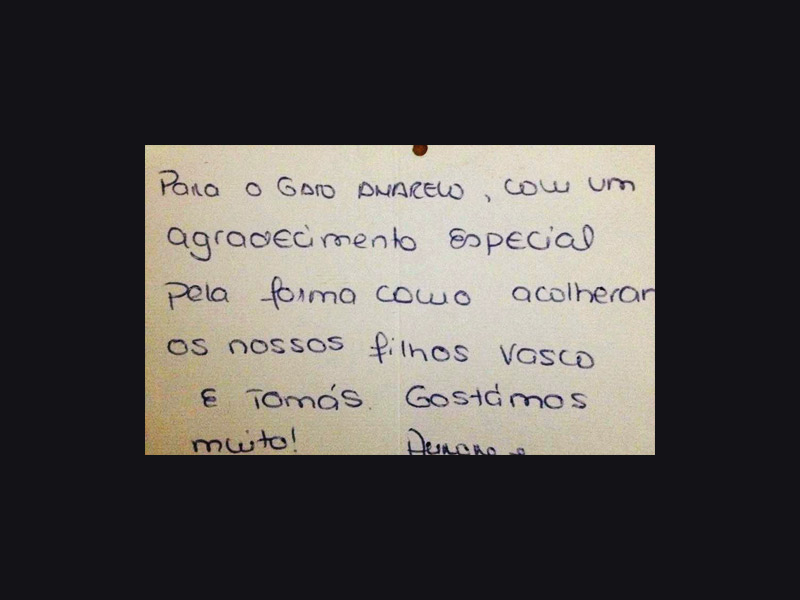 Para o GATO AMARELO, com um
agradecimento especial
pela forma como acolheram
os nossos filhos Vasco
e Tomás. Gostámos
muito!